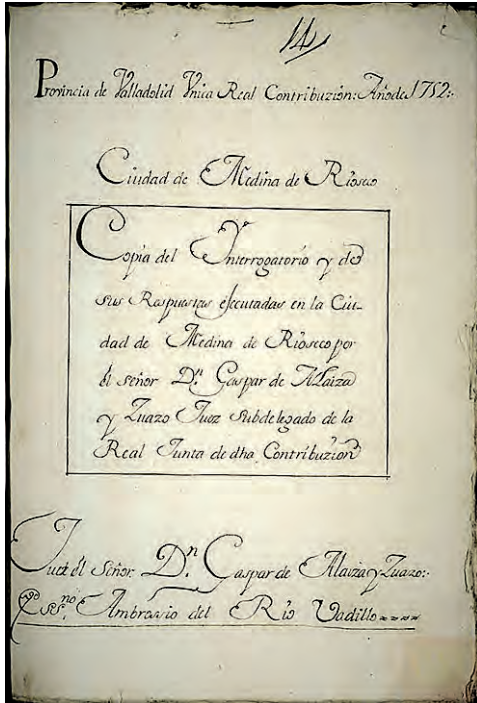 14
Provincia de Valladolid Vnica Real Contribuzion: Año de 1752:
Ciudad de Medina de Rioseco
Copia del Ynterrogatorio y de
sus Respuestas efecutadas en la Ciu-
dad de Medina de Rioseco por
el señor Dn. Gaspar de Alaiza
y Zuazo Juez Subdelegado de la
Real Junta de dha Contribuzion
Juez el Señor Dn. Gaspar de Alaiza y Zuazo:
esno. Ambrosio del Rio Vadillo